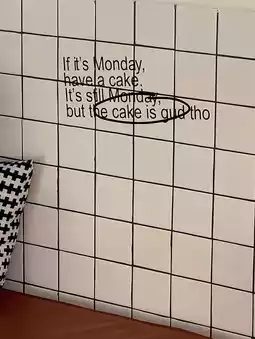 If it's Monday,
have a cake.
It's still Monday,
but the cake is gud tho